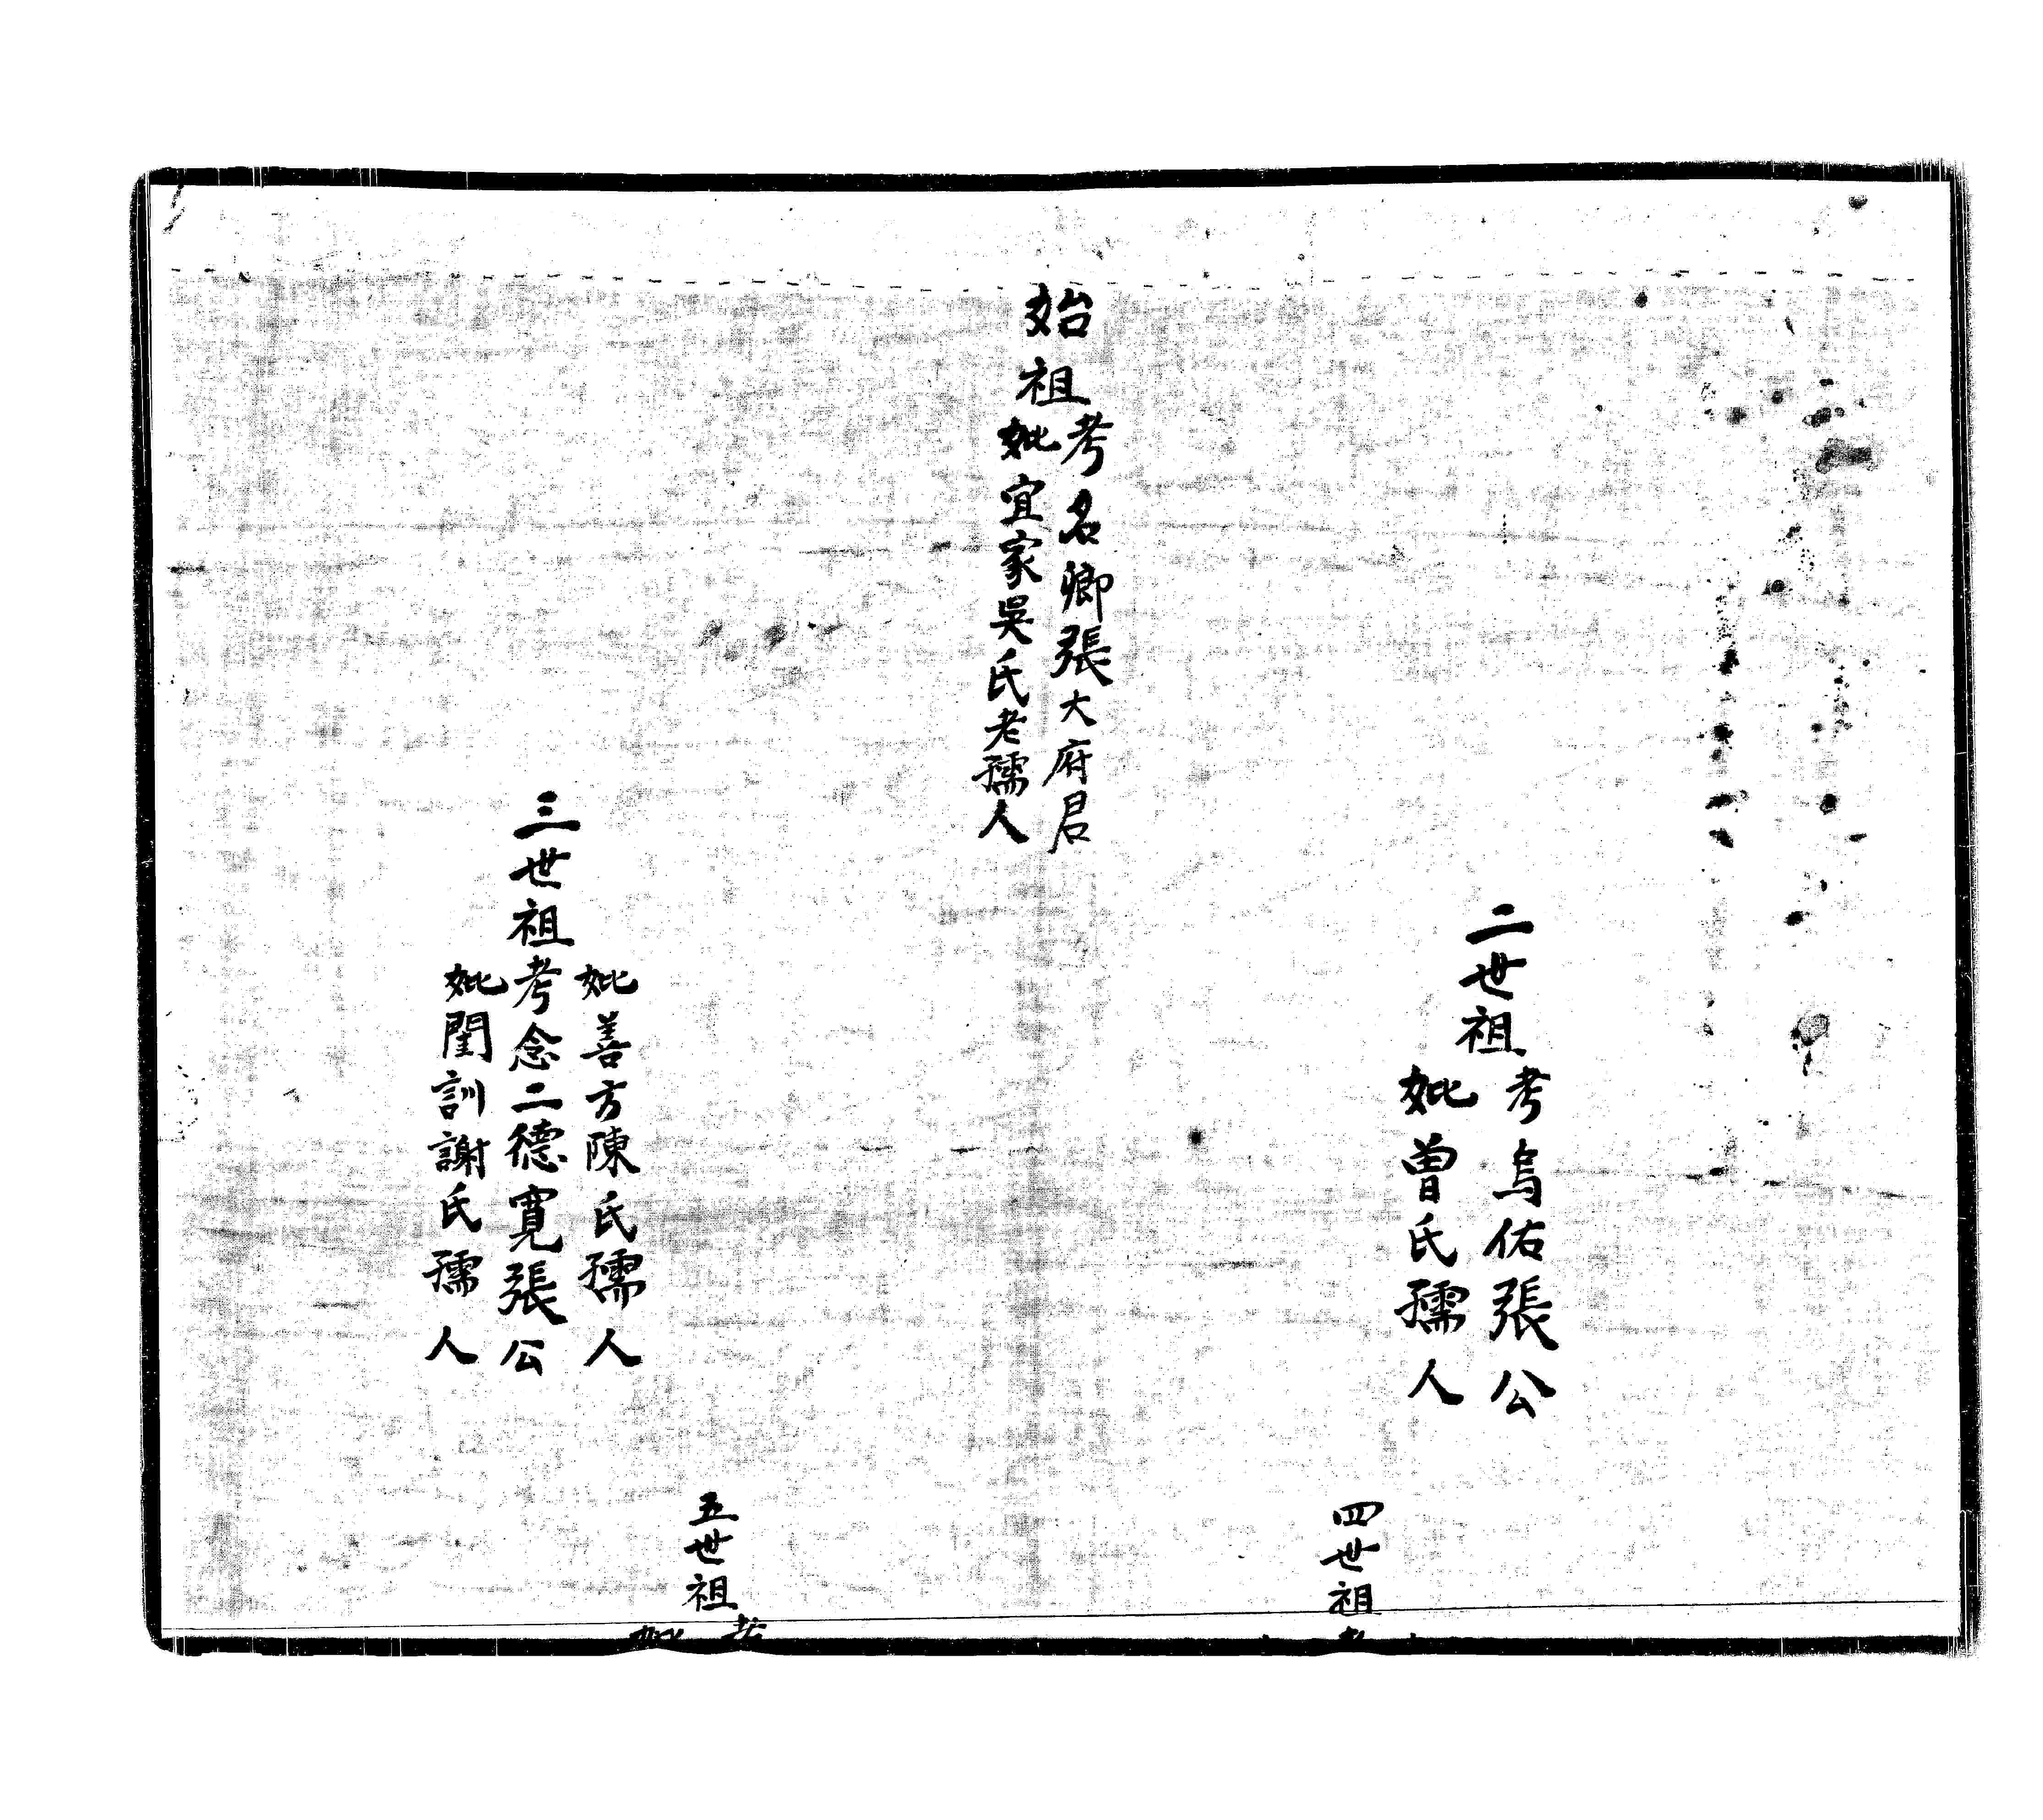 始祖
考名卿張大府君
妣宜家吳氏老孺人
二世祖
考烏佑張公
妣曾氏孺人
三世祖
妣善方陳氏孺人
考念二德寬張公
妣閨訓謝氏孺人
四世祖
五世祖
考
妣